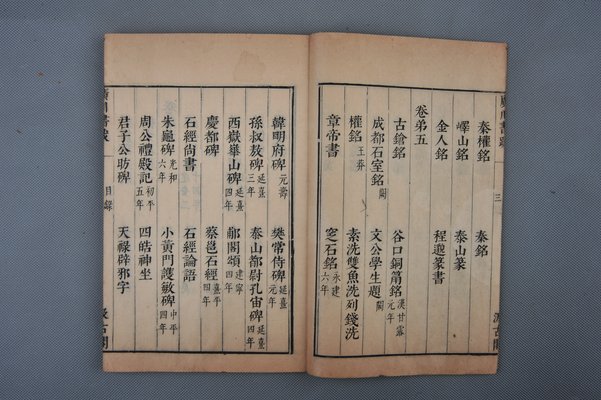 秦權銘 秦銘
嶧山銘 泰山篆
金人銘 程邈篆書
卷弟五
古鎗銘 谷口銅甬銘漢甘露元年
成都石室銘闕 文公學生題闕
權銘王莽 素洗雙魚洗列錢洗
章帝書 窆石銘永建
韓明府碑元壽 樊常侍碑延熹元年
孫叔敖碑延熹三年 泰山都尉孔宙碑延熹四年
西嶽華山碑延熹四年 郙閣頌建寧四年
慶都碑 蔡邕石經熹平四年
石經尚書 石經論語
朱龜碑光和六年 小黃門譙敏碑中平四年
周公禮殿記初平五年 四皓神坐
君子公昉碑 天祿辟邪字
目錄
汲古閣